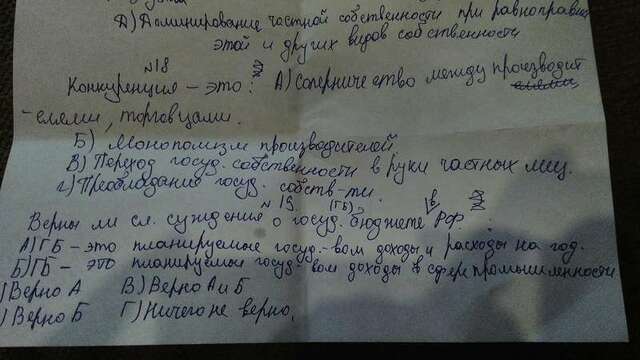 Д) Доминирование частной собственности при равноправии
этой и других видов собственности
№18
Конкуренция – это: А) Соперничество между производит
-елями, торговцами.
Б) Монополизм производителей
В) Переход госуд. собственности в руки частных лиц.
Г) Преобладание госуд. собств-ти.
№19. (ГБ) в
Верны ли сл. суждения о госуд. бюджете РФ:
А) ГБ – это планируемые госуд.-вом доходы и расходы на год.
Б) ГБ – это планируемые госуд-вом доходы в сфере промышленности
) Верно А В) Верно А и Б
) Верно Б Г) Ничего не верно.